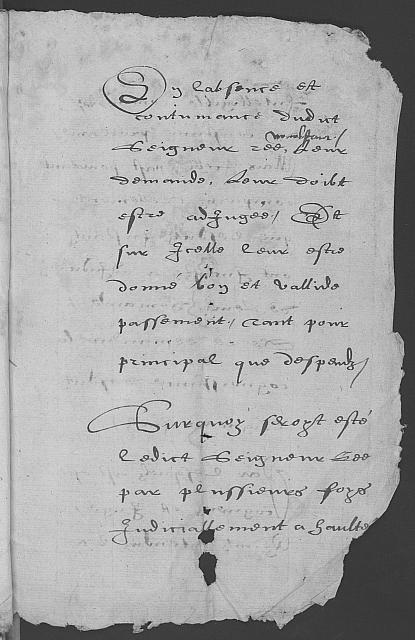 En labsence et
contumance dudict
Seigneur ree, leur
demande, leur doibt
estre adJugée, Et
sur Jcelle leur estre
donné bon et vallide
passement, tant pour
principal que despendz,
Surquoy seroyt esté
ledict Seigneur Ree
par plussieurs foys
Judiciallement a haulte